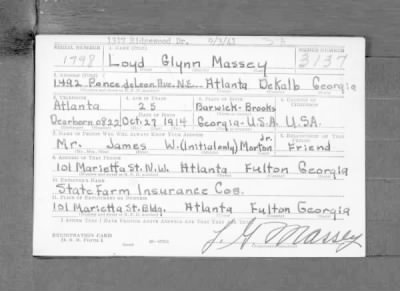 1317 Ridgewood Dr. 9/3/41
SERIAL NUMBER 1. NAME (Print) ORDER NUMBER
1798 Loyd Glynn Massey 3137
2. ADDRESS (Print)
1492 Ponce deLeon Ave. N.E. Atlanta DeKalb Georgia
3. TELEPHONE 4. AGE IN YEARS 5. PLACE OF BIRTH 6. COUNTRY OF CITIZENSHIP
Atlanta 25 Barwick-Brooks
Dearborn 0822 Oct. 27 1914 Georgia-U.S.A. U.S.A.
7. NAME OF PERSON WHO WILL ALWAYS KNOW YOUR ADDRESS 8. RELATIONSHIP OF THAT PERSON
Jr.
Mr. James W. (Initial only) Morton Friend
9. ADDRESS OF THAT PERSON
101 Marietta St. N.W. Atlanta Fulton Georgia
10. EMPLOYER'S NAME
State Farm Insurance Cos.
11. PLACE OF EMPLOYMENT OR BUSINESS
101 Marietta St. Bldg. Atlanta Fulton Georgia
I AFFIRM THAT I HAVE VERIFIED ABOVE ANSWERS AND THAT THEY ARE TRUE.
REGISTRATION CARD
D. S. S. Form 1
L. G. Massey